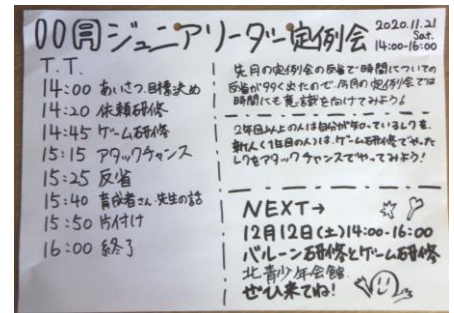 00月ジュニアリーダー定例会
2020.11.21
Sat.
14:00-16:00
T.T.
14:00 あいさつ.目標決め
14:20 依頼研修
14:45 ゲーム研修
15:15 アタックチャンス
15:25 反省
15:40 育成者さん.先生の話
15:50 片付け
16:00 終了
先月の定例会の反省で時間についての
反省が多く出たので、今月の定例会では
時間にも意識を向けてみよう!
2年目以上の人は自分が知っているレクを、
新人(1年目の人)は、ゲーム研修でやった
レクをアタックチャンスでやってみよう!
NEXT→
12月12日(土)14:00-16:00
バルーン研修とゲーム研修
北青少年会館
ぜひ来てね!